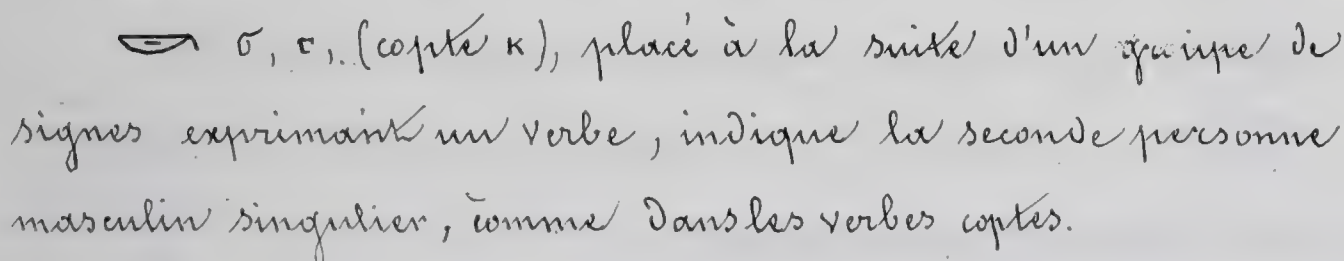 𓎡 σ, τ, (copte κ), placé à la suite d'un groupe de
signes exprimant un verbe, indique la seconde personne
masculin singulier, comme dans les verbes coptes.